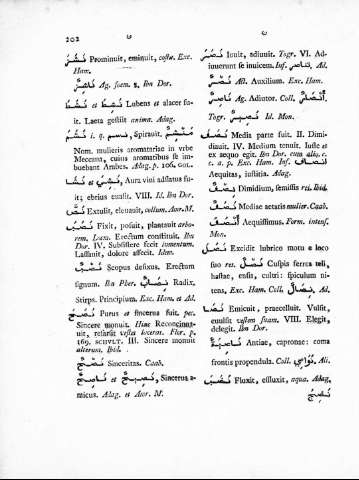 202
ن
ن
نَشَزَ Prominuit, eminuit, costæ. Exc.
Ham.
نَاشِزٌ Ag. foem. 2. Ibn Dor.
نَشِطَ et نَشَطَ Lubens et alacer fu-
it. Laeta gestiit anima. Adag.
نَشَمَ i. q. نسم, Spiravit. مَنْشِمٌ
Nom. mulieris aromatariae in urbe
Meccana, cuius aromatibus se im-
buebant Arabes. Adag. p. 106. GOL.
نَشَا et نَشِيَ, Aura vini adflatus fu-
it; ebrius euasit. VIII. Id. Ibn Dor.
نَصَّ Extulit, eleuauit, collum. Amr. M.
نَصَبَ Fixit, posuit, plantauit arbo-
rem. Laxu. Erectum constituit. Ibn
Dor. IV. Subsistere fecit iumentum.
Lassauit, dolore affecit. Idem.
نُصْبٌ Scopus defixus. Erectum
signum. Ibn Pher. نِصَابٌ Radix,
Stirps. Principium. Exc. Ham. et Ad.
نَصَحَ Purus et sincerus fuit, pec.
Sincere monuit. Hinc Reconcinna-
uit, resarsit vestes laceras. Flor. p.
169. SCHVLT. III. Sincere monuit
alterum. Ibid.
نُصْحٌ Sinceritas. Caab.
نَاصِحٌ et نَصِيحٌ, Sincerus a-
micus. Adag. et Amr. M.
نَصَرَ Iouit, adiuuit. Togr. VI. Ad-
iuuerunt se inuicem. Inf. تناصر Ad.
نَصْرٌ Act. Auxilium. Exc. Ham.
نَاصِرٌ Ag. Adiutor. Coll. أَنْصَارٌ
Togr. نَصِيرٌ Id. Mon.
نَصَفَ Media parte fuit. II. Dimi-
diauit. IV. Medium tenuit. Iuste et
ex aequo egit. Ibn Dor. cum alio, c.
c. a. p. Exc. Ham. Inf. إِنْصَافٌ
Aequitas, iustitia. Adag.
نِصْفٌ Dimidium, semissis rei. Ibid.
نَصَفٌ Mediae aetatis mulier. Caab.
أَنْصَفُ Aequissimus. Form. intens.
Mon.
نَصَلَ Excidit lubrico motu e loco
suo res. نَصْلٌ Cuspis ferrea teli,
hastae, ensis, cultri: spiculum ni-
tens, Exc. Ham. Coll. نِصَالٌ Ad.
نَصَا Emicuit, praecelluit. Vulsit,
euulsit vestem suam. VIII. Elegit,
delegit. Ibn Dor.
نَاصِيَةٌ Antiae, capronae: coma
frontis propendula. Coll. نَوَاصِي Ali.
نَضَبَ Fluxit, effluxit, aqua. Adag.
نَضِجَ